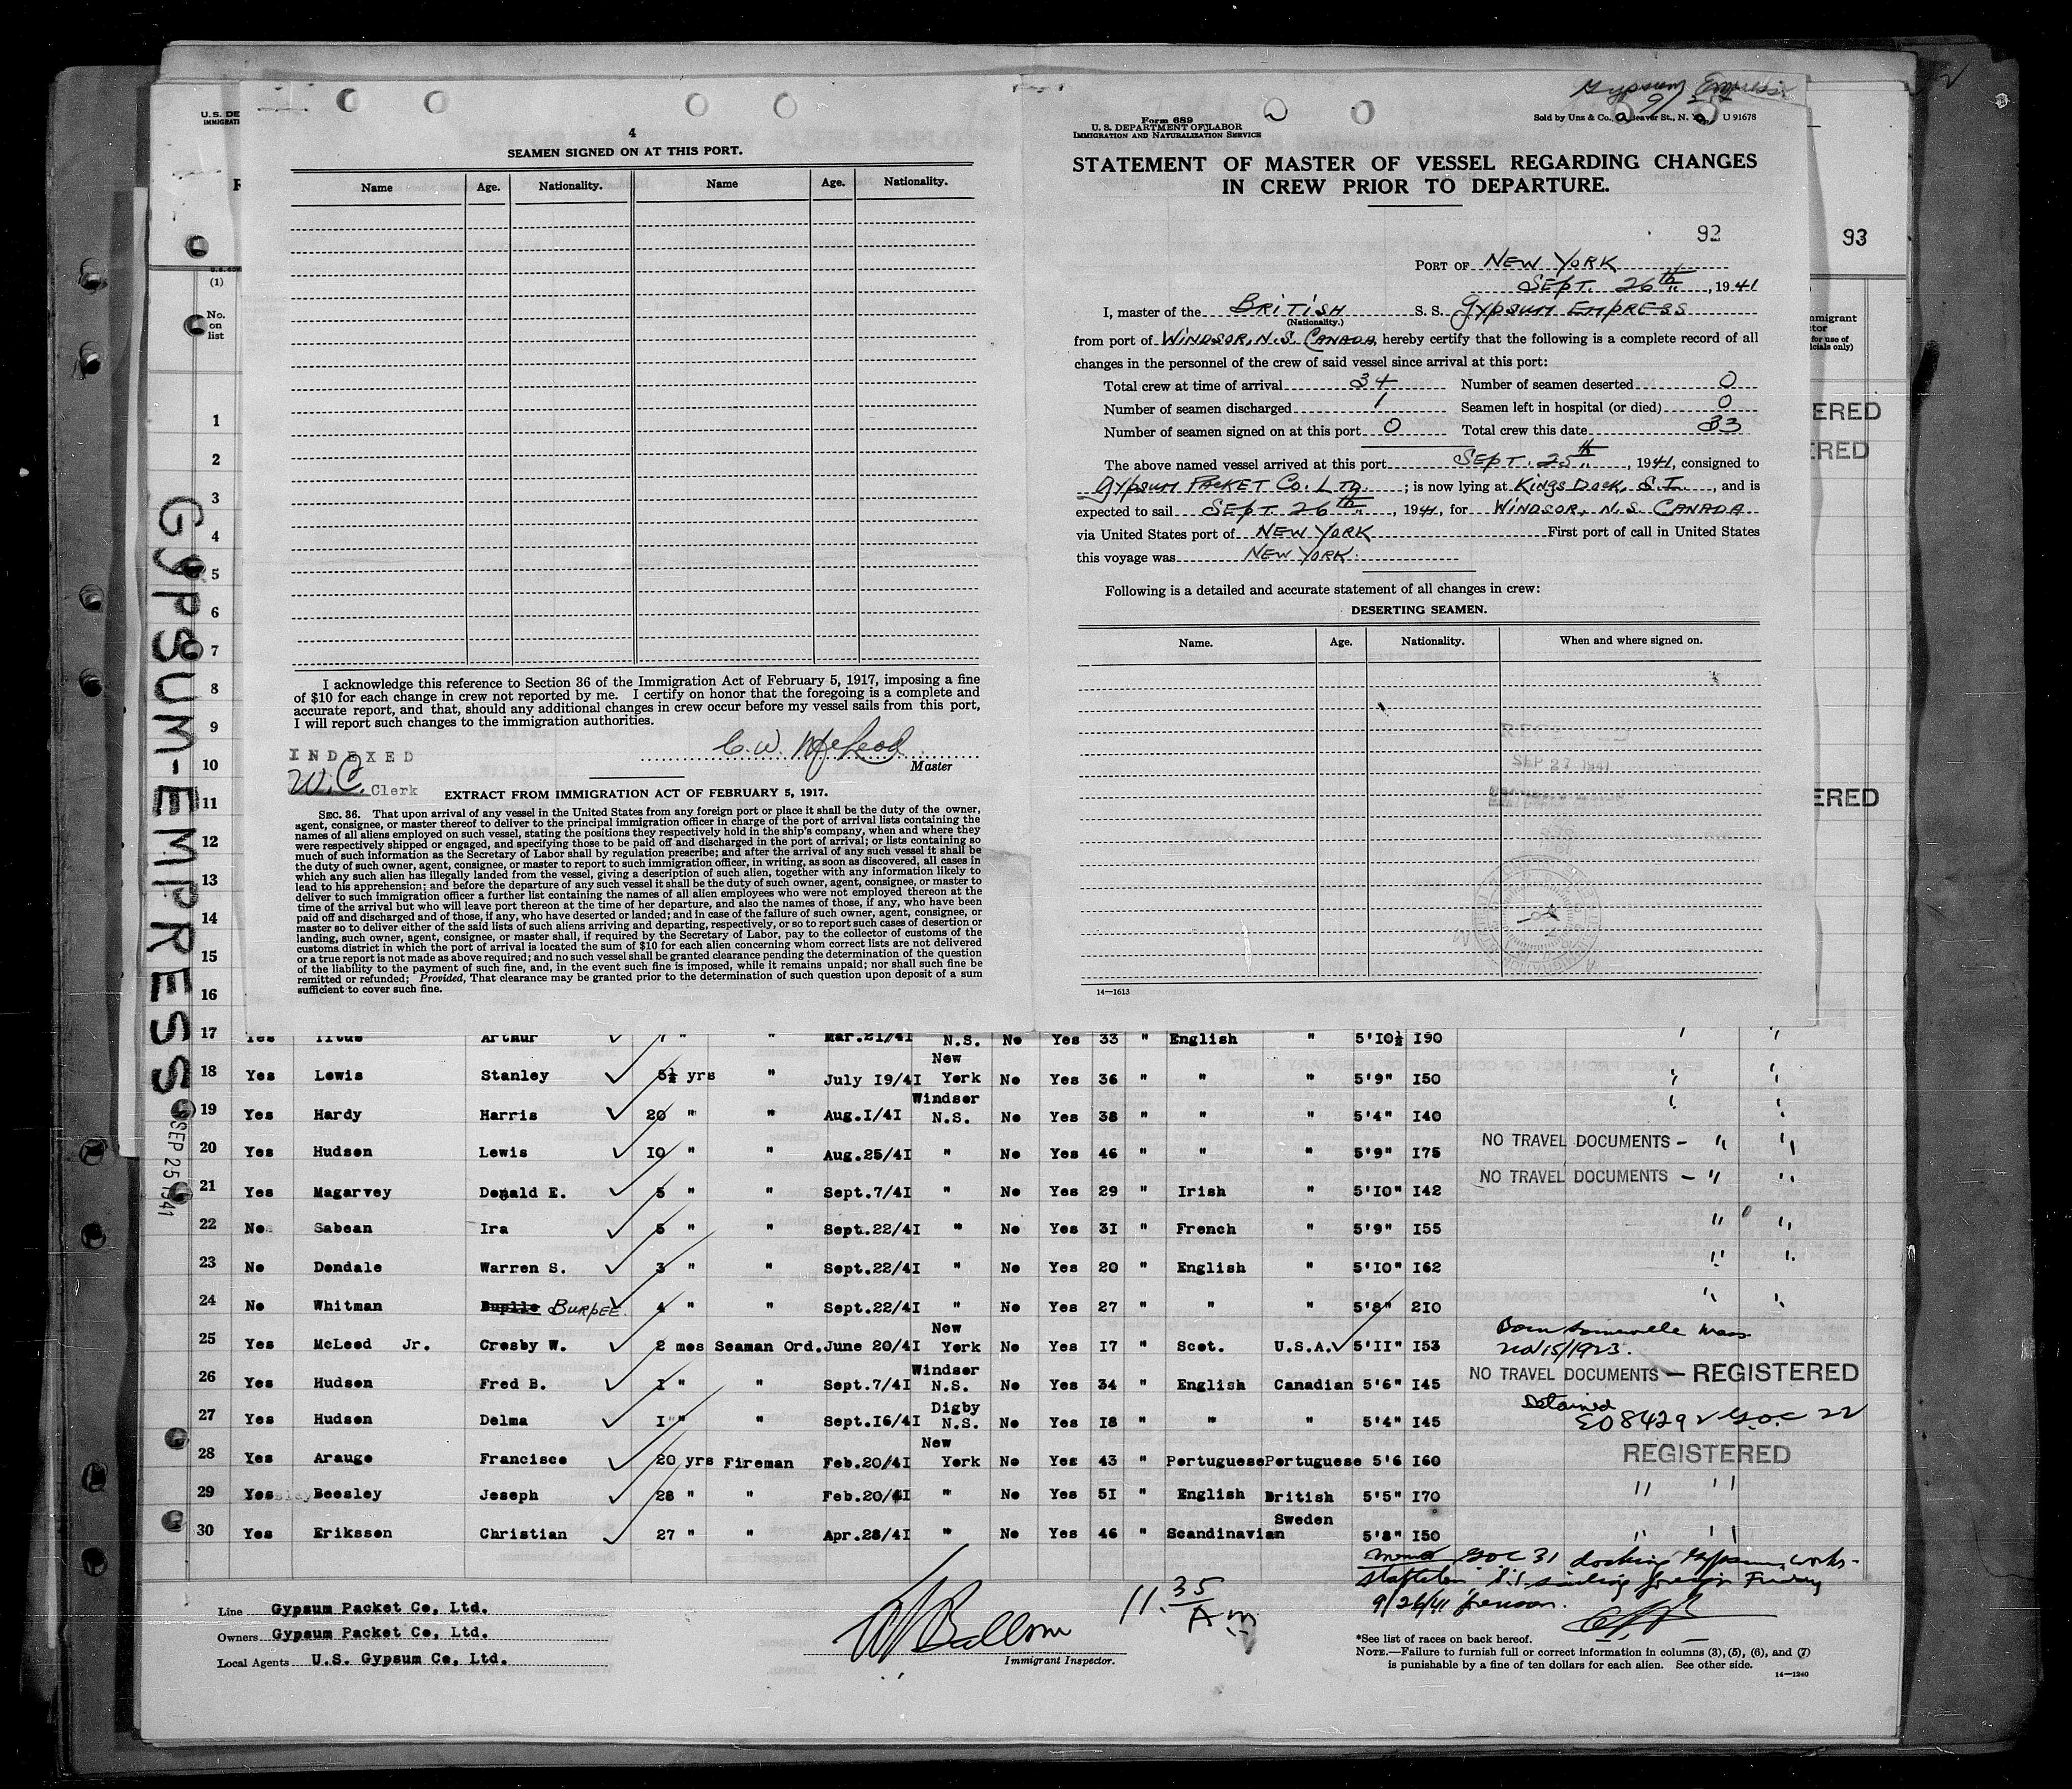 U.S. DE
IMMIGRATI
4
SEAMEN SIGNED ON AT THIS PORT.
Name Age. Nationality. Name Age. Nationality.
I acknowledge this reference to Section 36 of the Immigration Act of February 5, 1917, imposing a fine
of $10 for each change in crew not reported by me. I certify on honor that the foregoing is a complete and
accurate report, and that, should any additional changes in crew occur before my vessel sails from this port,
I will report such changes to the immigration authorities.
C. W. McLeod
Master
INDEXED
W.C. Clerk
EXTRACT FROM IMMIGRATION ACT OF FEBRUARY 5, 1917.
SEC. 36. That upon arrival of any vessel in the United States from any foreign port or place it shall be the duty of the owner,
agent, consignee, or master thereof to deliver to the principal immigration officer in charge of the port of arrival lists containing the
names of all aliens employed on such vessel, stating the positions they respectively hold in the ship's company, when and where they
were respectively shipped or engaged, and specifying those to be paid off and discharged in the port of arrival; or lists containing so
much of such information as the Secretary of Labor shall by regulation prescribe; and after the arrival of any such vessel it shall be
the duty of such owner, agent, consignee, or master to report to such immigration officer, in writing, as soon as discovered, all cases in
which any such alien has illegally landed from the vessel, giving a description of such alien, together with any information likely to
lead to his apprehension; and before the departure of any such vessel it shall be the duty of such owner, agent, consignee, or master to
deliver to such immigration officer a further list containing the names of all alien employees who were not employed thereon at the
time of the arrival but who will leave port thereon at the time of her departure, and also the names of those, if any, who have been
paid off and discharged and of those, if any, who have deserted or landed; and in case of the failure of such owner, agent, consignee, or
master so to deliver either of the said lists of such aliens arriving and departing, respectively, or so to report such cases of desertion or
landing, such owner, agent, consignee, or master shall, if required by the Secretary of Labor, pay to the collector of customs of the
customs district in which the port of arrival is located the sum of $10 for each alien concerning whom correct lists are not delivered
or a true report is not made as above required; and no such vessel shall be granted clearance pending the determination of the question
of the liability to the payment of such fine, and, in the event such fine is imposed, while it remains unpaid; nor shall such fine be
remitted or refunded; Provided, That clearance may be granted prior to the determination of such question upon deposit of a sum
sufficient to cover such fine.
Gypsum Empress
Form 689
U. S. DEPARTMENT OF LABOR
IMMIGRATION AND NATURALIZATION SERVICE
Sold by Unz & Co., Beaver St., N. Y. U 91678
STATEMENT OF MASTER OF VESSEL REGARDING CHANGES
IN CREW PRIOR TO DEPARTURE.
92
93
PORT OF NEW YORK
SEPT. 26th, 1941
I, master of the BRITISH S. S. GYPSUM EMPRESS
(Nationality.)
from port of WINDSOR, N.S. CANADA, hereby certify that the following is a complete record of all
changes in the personnel of the crew of said vessel since arrival at this port:
Total crew at time of arrival 34 Number of seamen deserted 0
Number of seamen discharged 1 Seamen left in hospital (or died) 0
Number of seamen signed on at this port 0 Total crew this date 33
The above named vessel arrived at this port SEPT. 25th, 1941, consigned to
GYPSUM PACKET CO. LTD.; is now lying at KINGS DOCK, S.I., and is
expected to sail SEPT 26th, 1941, for WINDSOR, N.S. CANADA
via United States port of NEW YORK First port of call in United States
this voyage was NEW YORK.
Following is a detailed and accurate statement of all changes in crew:
DESERTING SEAMEN.
Name. Age. Nationality. When and where signed on.
SEP 27 1941
14—1613
(1)
No. on list
mmigrant
ctor
for use of
icials only)
ERED
ERED
ERED
GYPSUM-EMPRESS
SEP 25 1941
1
2
3
4
5
6
7
8
9
10
11
12
13
14
15
16
17 Yes Titus Arthur 7 " " Mar.21/41 N.S. No Yes 33 " English " 5'10½ 190 " "
18 Yes Lewis Stanley 5½ yrs " July 19/41 New York No Yes 36 " " " 5'9" 150 " "
19 Yes Hardy Harris 20 " " Aug.1/41 Windsor N.S. No Yes 38 " " " 5'4" 140 " "
20 Yes Hudson Lewis 10 " " Aug.25/41 " No Yes 46 " " " 5'9" 175 NO TRAVEL DOCUMENTS - " "
21 Yes Magarvey Donald E. 5 " " Sept.7/41 " No Yes 29 " Irish " 5'10" 142 NO TRAVEL DOCUMENTS - " "
22 No Sabean Ira 5 " " Sept.22/41 " No Yes 31 " French " 5'9" 155 " "
23 No Dondale Warren S. 3 " " Sept.22/41 " No Yes 20 " English " 5'10" 162 " "
24 No Whitman BURPEE. 4 " " Sept.22/41 " No Yes 27 " " " 5'8" 210 " "
25 Yes McLeod Jr. Crosby W. 2 mos Seaman Ord. June 20/41 New York No Yes 17 " Scot. U.S.A. 5'11" 153 Born Somerville Mass. Nov 15/1923.
26 Yes Hudson Fred B. 1 " " Sept.7/41 Windsor N.S. No Yes 34 " English Canadian 5'6" 145 NO TRAVEL DOCUMENTS - REGISTERED
27 Yes Hudson Delma 1 " " Sept.16/41 Digby N.S. No Yes 18 " " " 5'4" 145 Detained EO 8429
28 Yes Arauge Francisco 20 yrs Fireman Feb.20/41 New York No Yes 43 " Portuguese Portuguese 5'6 160 REGISTERED
29 Yes Beesley Joseph 28 " " Feb.20/41 " No Yes 51 " English British 5'5" 170 " "
30 Yes Eriksson Christian 27 " " Apr.28/41 " No Yes 46 " Scandinavian Sweden 5'8" 150 " "
Line Gypsum Packet Co, Ltd.
Owners Gypsum Packet Co, Ltd.
Local Agents U.S. Gypsum Co, Ltd.
Immigrant Inspector.
11.35 A m
docking Gypsum works-
sailing foreign Friday
9/26/41
*See list of races on back hereof.
NOTE.—Failure to furnish full or correct information in columns (3), (5), (6), and (7)
is punishable by a fine of ten dollars for each alien. See other side.
14—1240